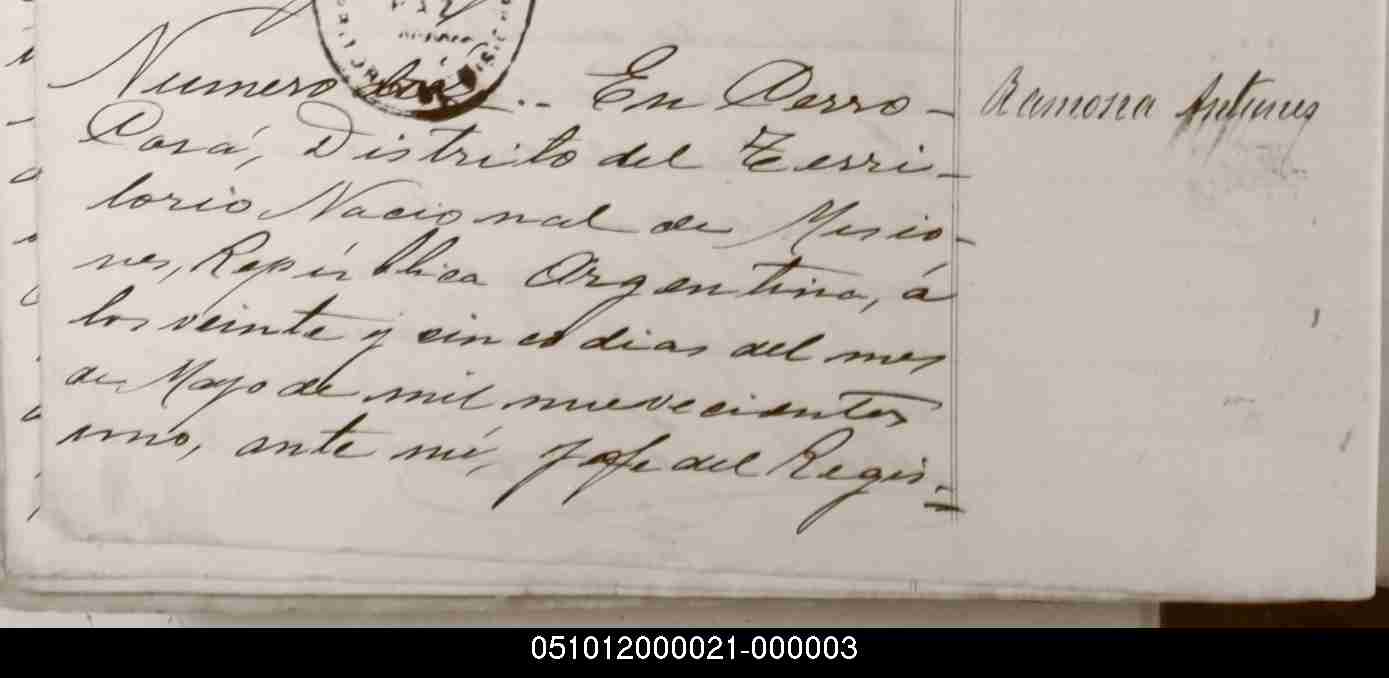 Numero .. En Cerro- Ramona Antunes
Corá, Distrito del Terri-
torio Nacional de Misio-
nes, República Argentina, á
los veinte y cinco dias del mes
de Mayo de mil nuevecientos
uno, ante mi, Jefe del Regis-
051012000021-000003